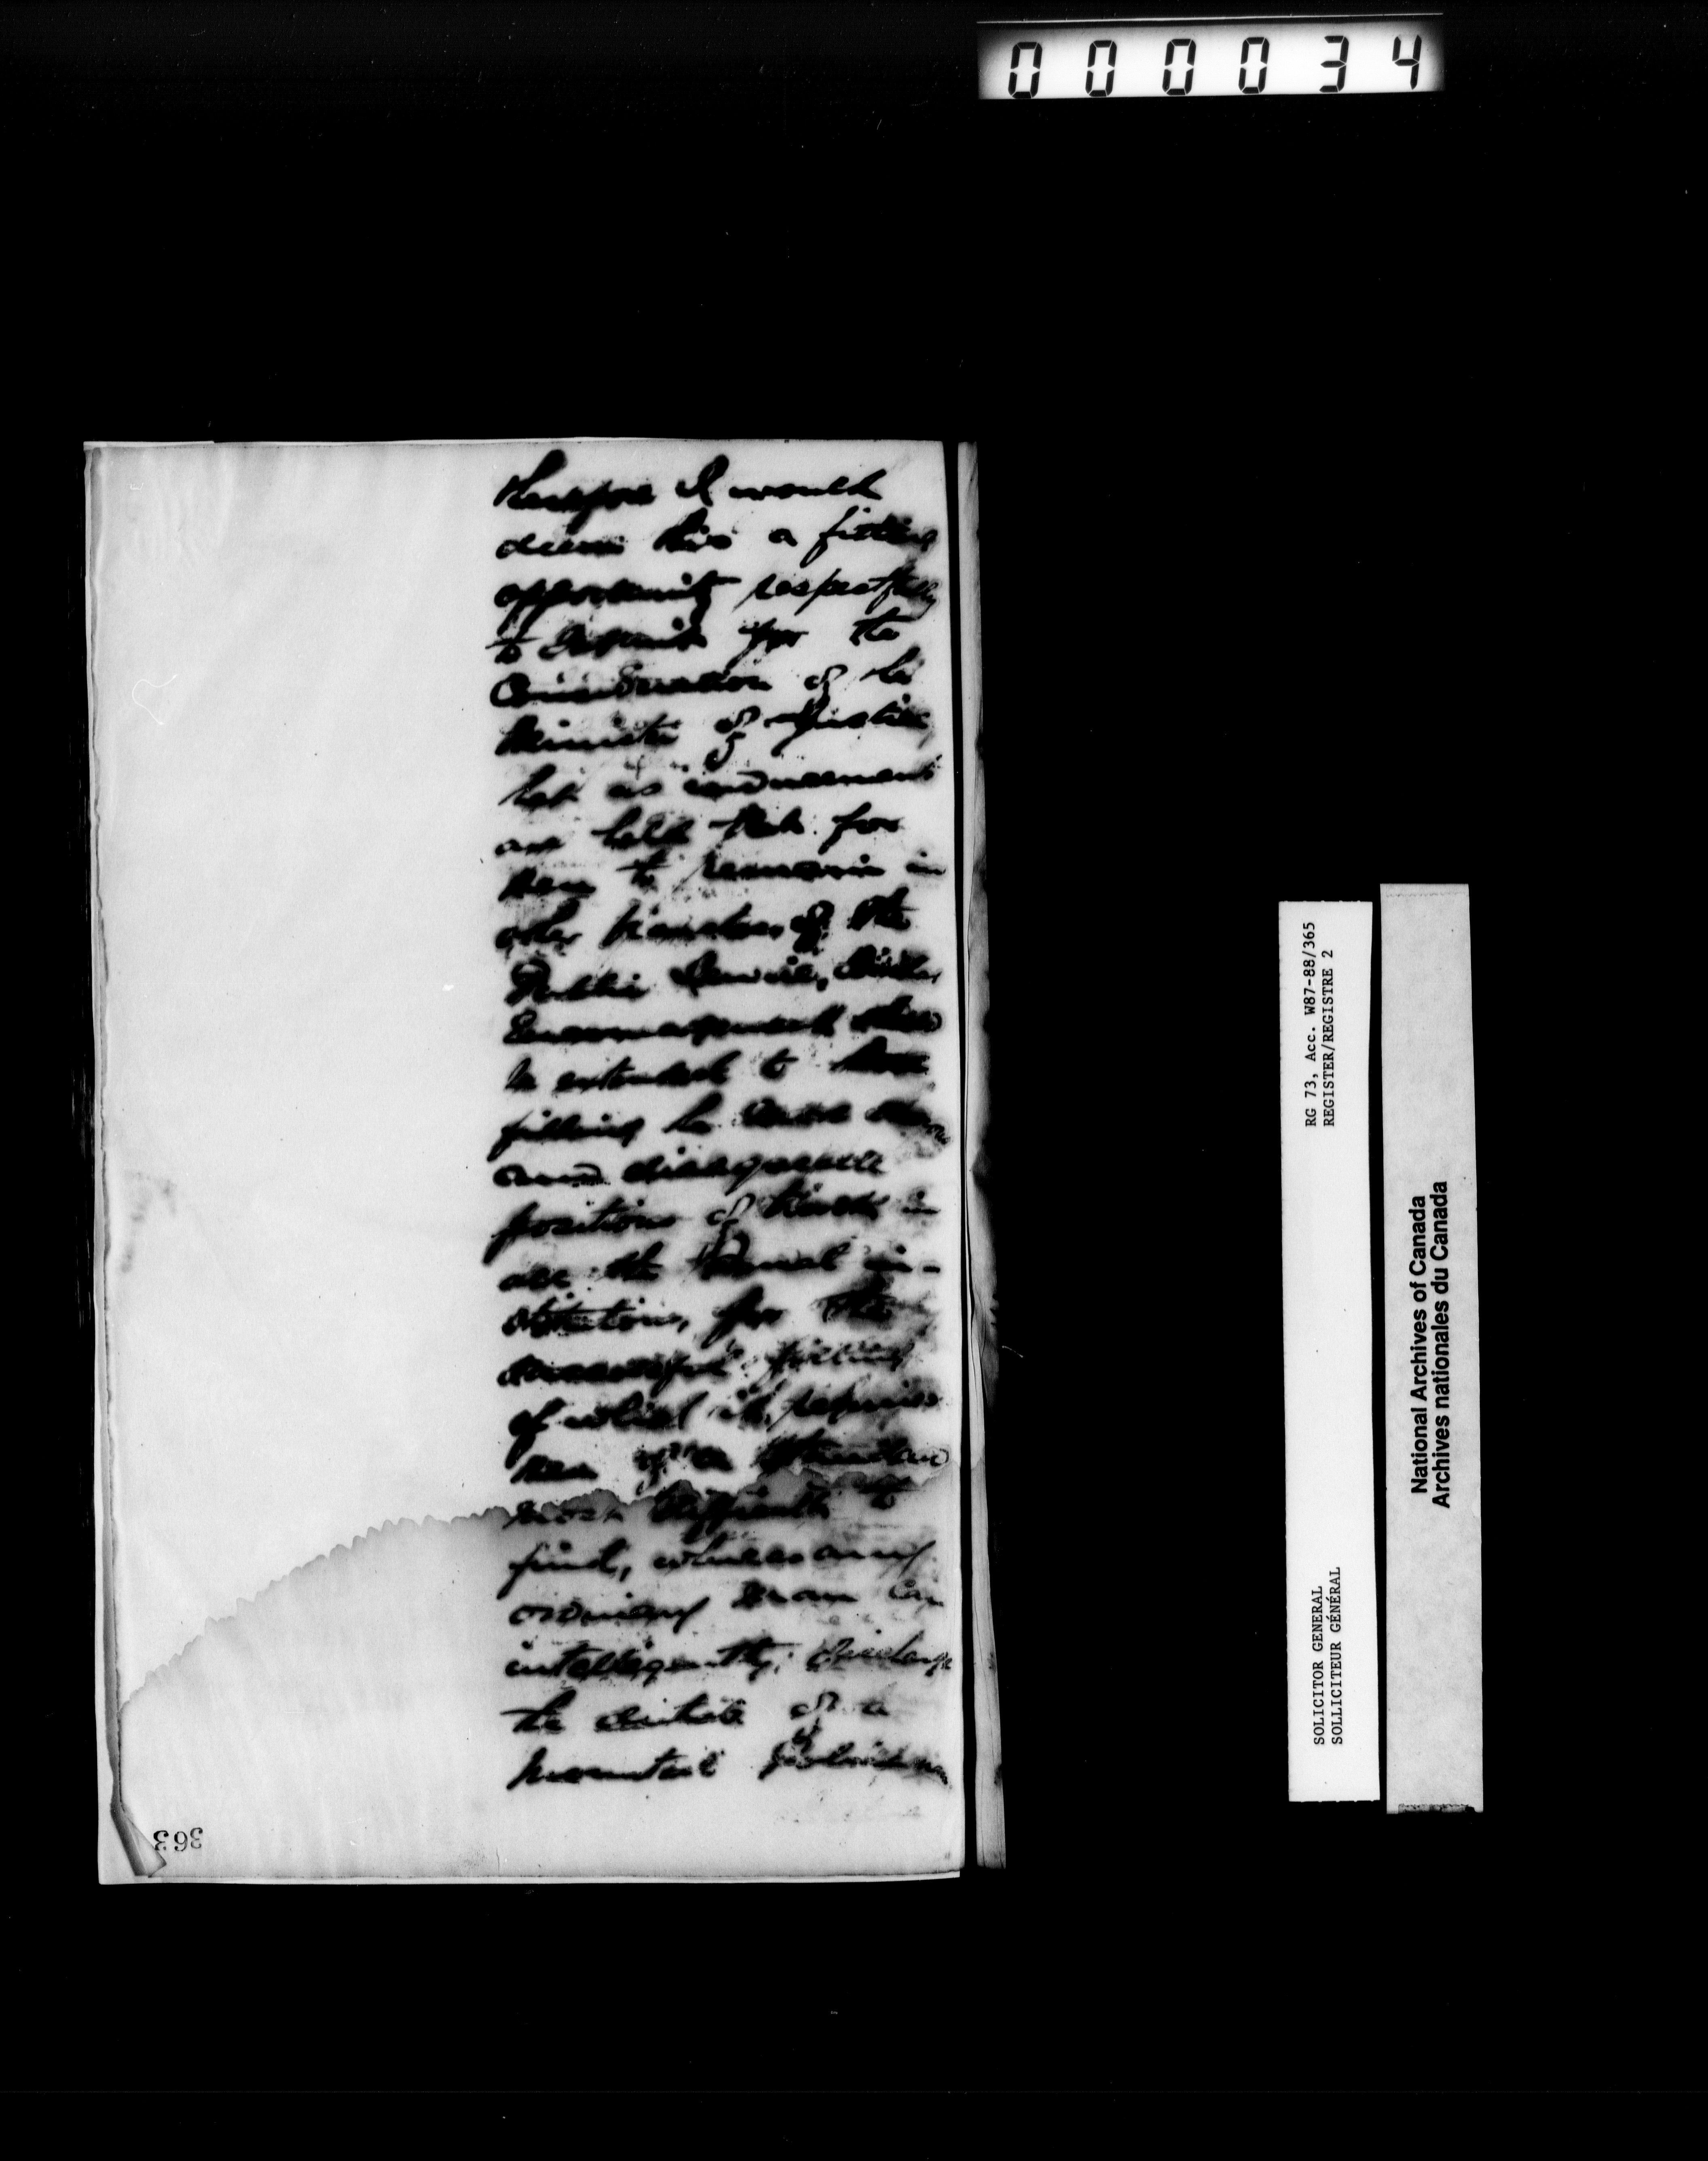 000034
therefore I would
deem this a fitting
opportunity respectfully
to submit for the
Consideration of the
Minister of Justice,
that as inducements
are held out for
men to remain in
other branches of the
Public Service, similar
Encouragement should
be extended to those
filling the more
and disagreeable
positions of trust in
all the Penal in-
stitutions, for the
successful filling
of which it requires
men of a
most difficult to
find, whereas any
ordinary man can
intelligently discharge
the duties of a
mounted policeman
363
RG 73, Acc. W87-88/365
REGISTER/REGISTRE 2
SOLICITOR GENERAL
SOLLICITEUR GÉNÉRAL
National Archives of Canada
Archives nationales du Canada